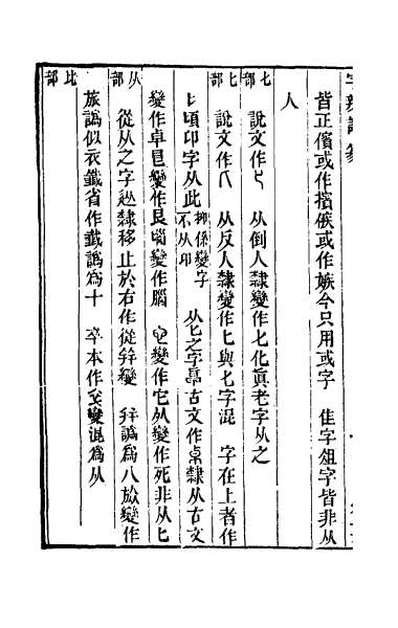 皆正儐或作擯㑵或作嫉今只用或字　隹字俎字皆非从
人
𠤎部
說文作𠤎　从倒人隸變作七化眞老字从之
匕部
說文作𠤎　从反人隸變作匕與七字混　字在上者作
頃卬字从此抑係變字不从卬　从匕之字㮚古文作桌隸从古文
變作卓皀變作艮𡿺變作腦　變作它𣦵變作死非从匕
从部
從从之字𨑢隸移止於右作從幷變　譌為八放變作
旅譌似衣韱省作韯譌為十　卒本作變混為从
比部